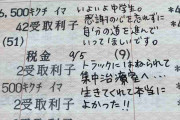 6,500キクチ イマ
42受取利子
(51)
いよいよ中学生。
感謝の心を忘れずに
自分の道を進んで
いってほしいです。
税金 9/5 (9)
2受取利子
トラックにはねられて
500キクチ イマ
集中治療室へ…
2受取利子
生きてくれて本当に
よかった!!
500キクチ イマ